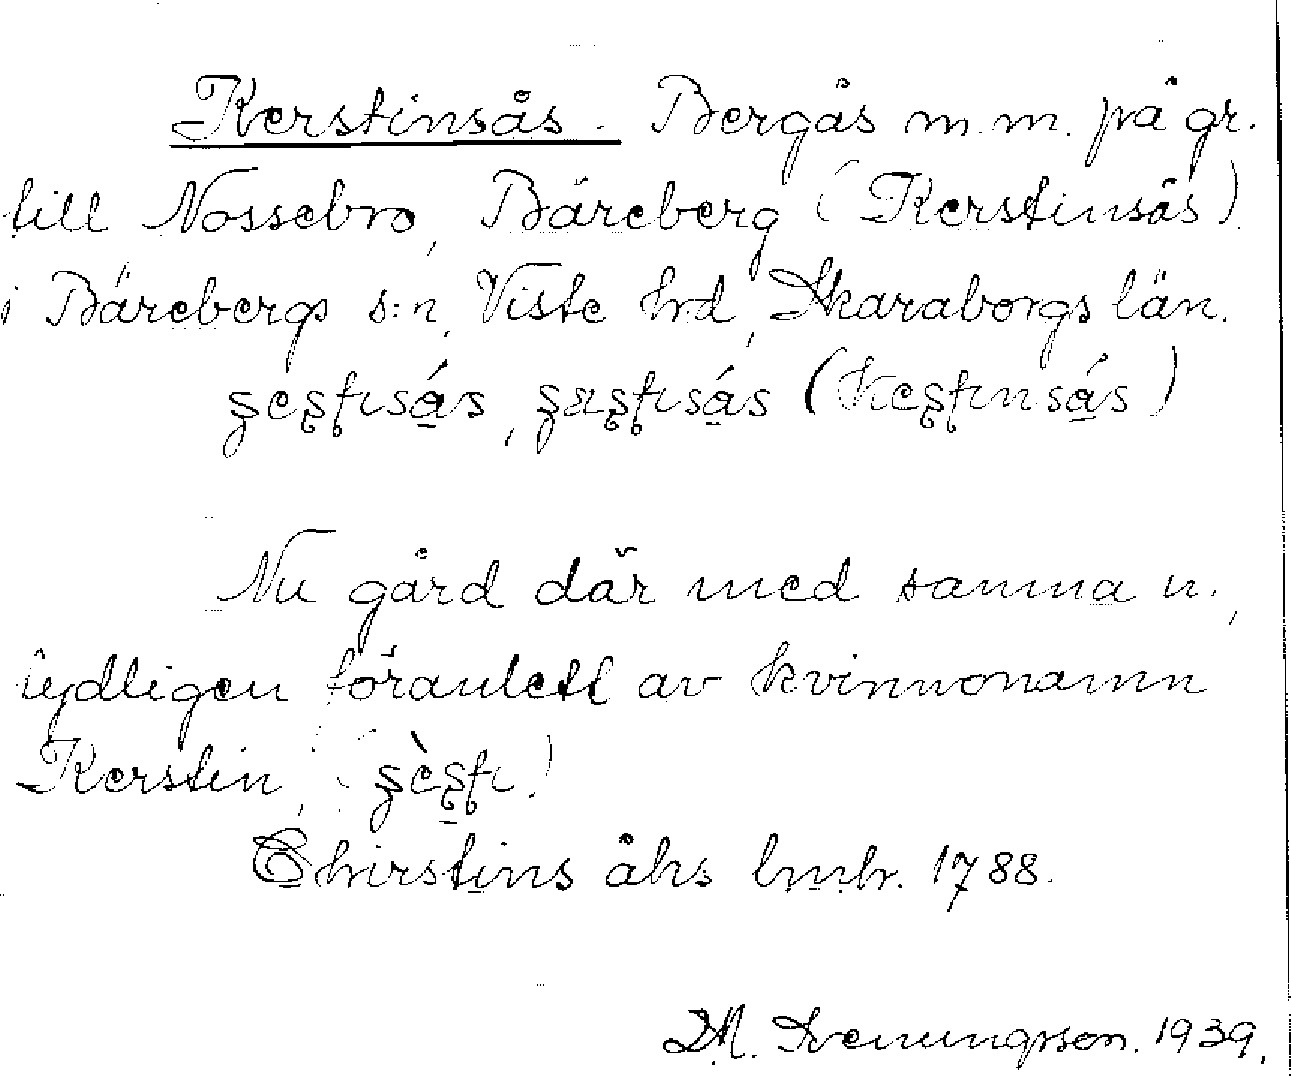 Kerstinsås. Bergås m.m. på gr.
till Nossebro, Bäreberg (Kerstinsås)
i Bärebergs s:n, Viste hrd, Skaraborgs län.
Nu gård där med samma n.,
tydligen föranlett av kvinnonamn
Kerstin,
Chirstins åhs lmh. 1788.
D.A. Svenungsson. 1939.